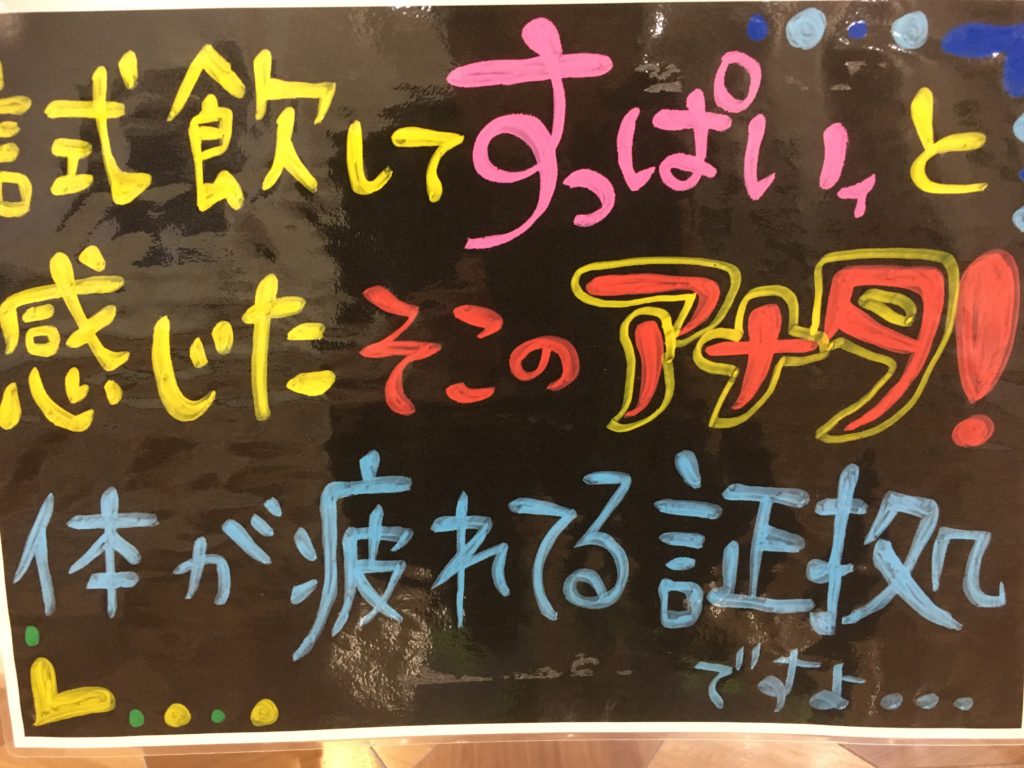 試飲してすっぱいィと
感じたそこのアナタ!
体が疲れてる証拠
ですょ....